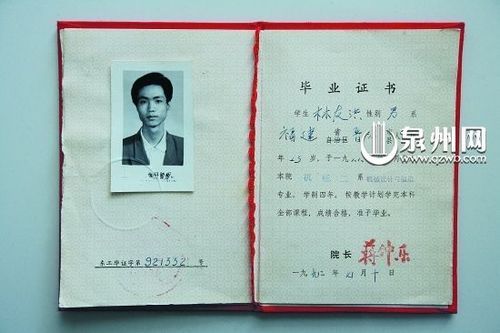 东工毕证字第921332号
毕业证书
学生林友洪性别男系
福建省
自治区
泉州网
www.qzwb.com
年23岁，于一九
本院机械二系机械设计与制造
专业，学制四年，按教学计划学完本科
全部课程，成绩合格，准予毕业。
院长 蒋仲乐
一九九二年 月十日